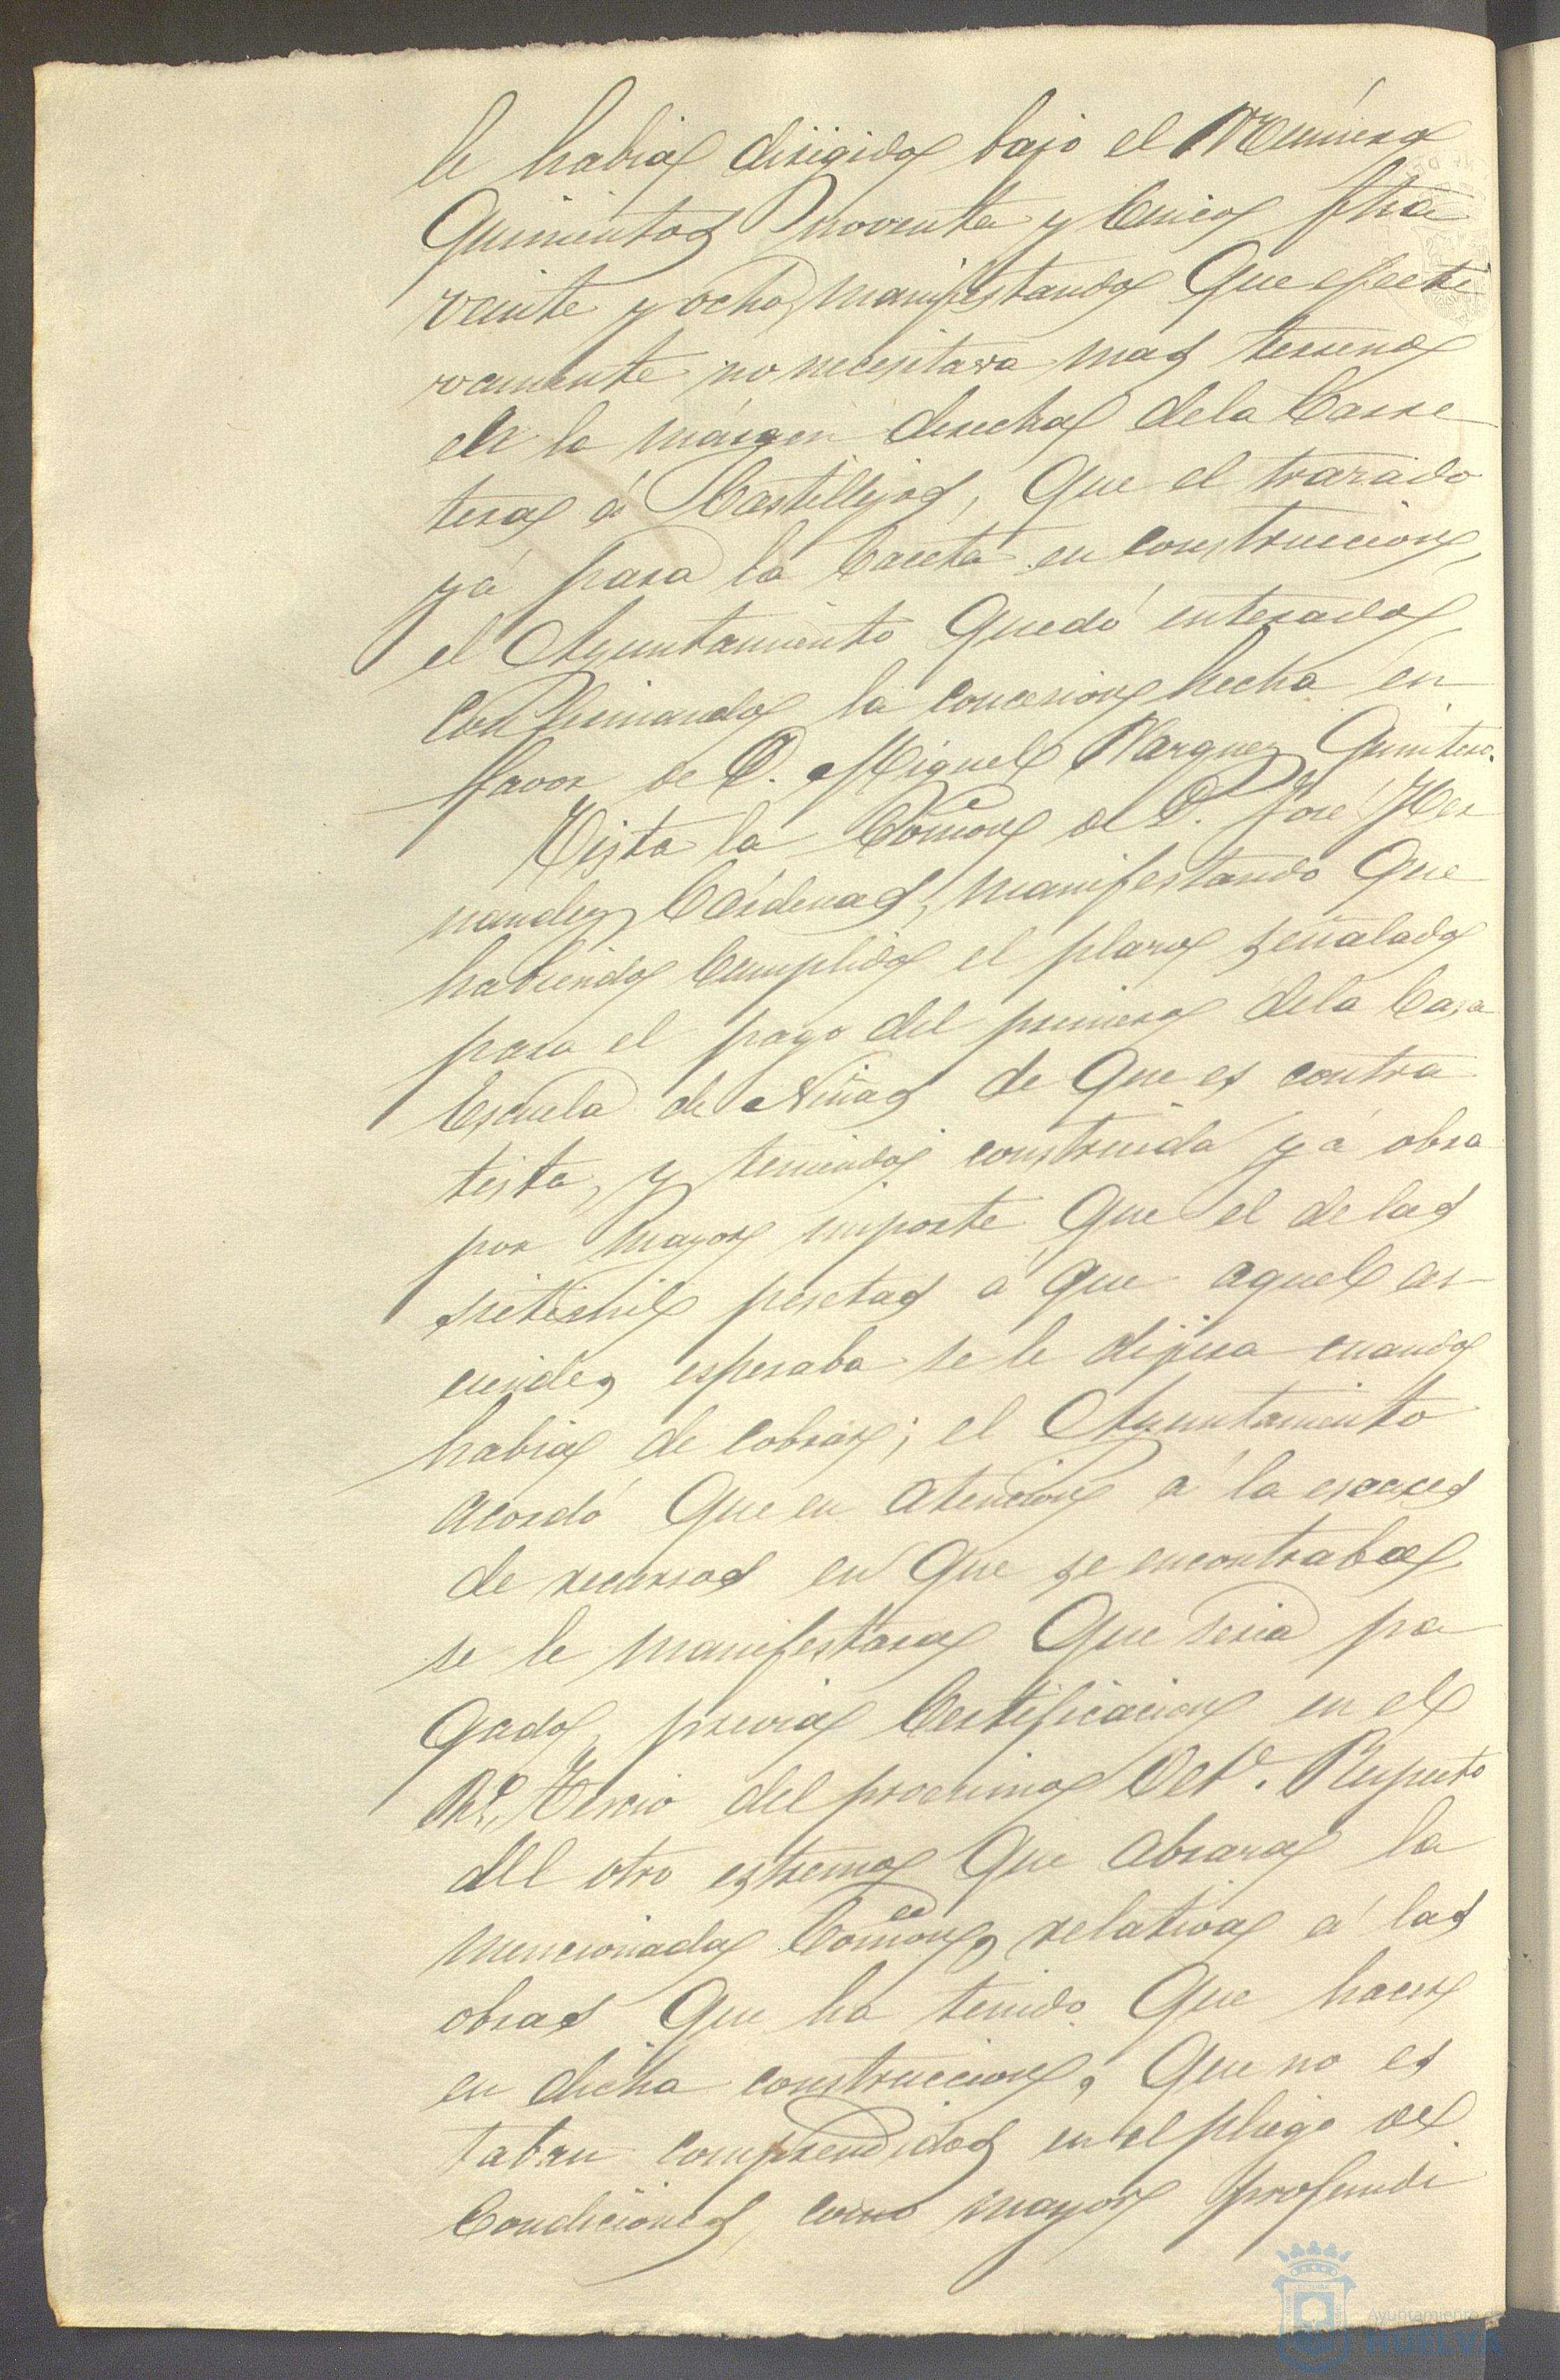 le habia dirigido bajo el Número
Quinientos noventa y Cinco fha
veinte y ocho, manifestando Que efecti
vamente no necesitava mas terreno
en la márgen derecha dela Carre
tera á Castillejos, Que el trazado
yá para la Caceta en construccion,
el Ayuntamiento Quedó enterado,
Confirmando la concesion hecha en
favor de D. Miguel Vazquez Quintero.
Vista la Comon de D. José Her
nandez Cárdenas, manifestando Que
habiendo Cumplido el plazo señalado
para el pago del primero dela Casa
Escuela de Niñas de Que es contra
tista, y teniendo construida yá obra
por mayor importe Que el de las
sietemil pesetas á Que aquel as-
ciende, esperaba se le dijera cuando
habia de Cobrar; el Ayuntamiento
acordó Que en atencion á la escases
de recursos en Que se encontraba,
se le manifestara Que seria pa
gado, previa Certificacion en el
Tercio del procsimo Respecto
del otro estremo Que abraza la
mencionada Comon, relativa á las
obras Que ha tenido Que hacer
en dicha construccion, Que no es
taban comprendidos en el pliego de
Condiciones, como mayor profundi
Ayuntamiento de
HUELVA